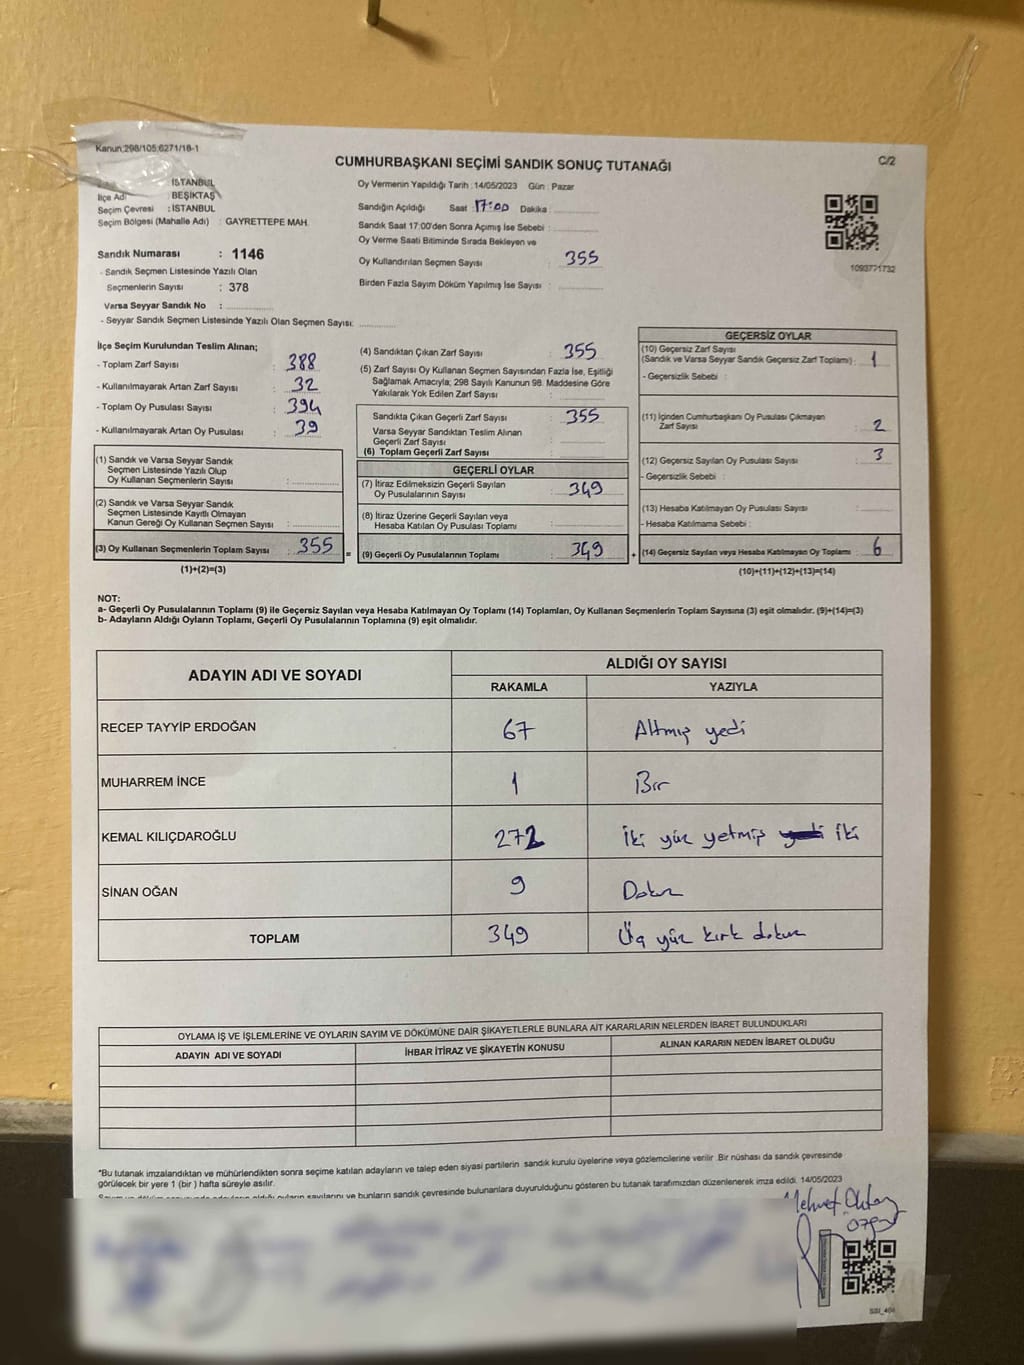 Kanun:298/105;6271/18-1
C/2
CUMHURBAŞKANI SEÇİMİ SANDIK SONUÇ TUTANAĞI
İSTANBUL
İlçe Adı : BEŞİKTAŞ
Seçim Çevresi : İSTANBUL
Seçim Bölgesi (Mahalle Adı) : GAYRETTEPE MAH.
Sandık Numarası : 1146
- Sandık Seçmen Listesinde Yazılı Olan
Seçmenlerin Sayısı : 378
Varsa Seyyar Sandık No :
- Seyyar Sandık Seçmen Listesinde Yazılı Olan Seçmen Sayısı:
Oy Vermenin Yapıldığı Tarih :14/05/2023 Gün : Pazar
Sandığın Açıldığı Saat : 17:00 Dakika
Sandık Saat 17:00'den Sonra Açımış İse Sebebi :
Oy Verme Saati Bitiminde Sırada Bekleyen ve
Oy Kullandırılan Seçmen Sayısı : 355
Birden Fazla Sayım Döküm Yapılmış İse Sayısı :
1093771732
İlçe Seçim Kurulundan Teslim Alınan;
- Toplam Zarf Sayısı : 388
- Kullanılmayarak Artan Zarf Sayısı : 32
- Toplam Oy Pusulası Sayısı : 394
- Kullanılmayarak Artan Oy Pusulası : 39
(1) Sandık ve Varsa Seyyar Sandık
Seçmen Listesinde Yazılı Olup
Oy Kullanan Seçmenlerin Sayısı :
(2) Sandık ve Varsa Seyyar Sandık
Seçmen Listesinde Kayıtlı Olmayan
Kanun Gereği Oy Kullanan Seçmen Sayısı :
(3) Oy Kullanan Seçmenlerin Toplam Sayısı : 355 =
(1)+(2)=(3)
(4) Sandıktan Çıkan Zarf Sayısı : 355
(5) Zarf Sayısı Oy Kullanan Seçmen Sayısından Fazla İse, Eşitliği
Sağlamak Amacıyla; 298 Sayılı Kanunun 98. Maddesine Göre
Yakılarak Yok Edilen Zarf Sayısı :
Sandıkta Çıkan Geçerli Zarf Sayısı : 355
Varsa Seyyar Sandıktan Teslim Alınan
Geçerli Zarf Sayısı :
(6) Toplam Geçerli Zarf Sayısı :
GEÇERLİ OYLAR
(7) İtiraz Edilmeksizin Geçerli Sayılan
Oy Pusulalarının Sayısı : 349
(8) İtiraz Üzerine Geçerli Sayılan veya
Hesaba Katılan Oy Pusulası Toplamı :
(9) Geçerli Oy Pusulalarının Toplamı : 349 +
GEÇERSİZ OYLAR
(10) Geçersiz Zarf Sayısı
(Sandık ve Varsa Seyyar Sandık Geçersiz Zarf Toplamı) : 1
- Geçersizlik Sebebi :
(11) İçinden Cumhurbaşkanı Oy Pusulası Çıkmayan
Zarf Sayısı : 2
(12) Geçersiz Sayılan Oy Pusulası Sayısı : 3
- Geçersizlik Sebebi :
(13) Hesaba Katılmayan Oy Pusulası Sayısı :
- Hesaba Katılmama Sebebi :
(14) Geçersiz Sayılan veya Hesaba Katılmayan Oy Toplamı : 6
(10)+(11)+(12)+(13)=(14)
NOT:
a- Geçerli Oy Pusulalarının Toplamı (9) ile Geçersiz Sayılan veya Hesaba Katılmayan Oy Toplamı (14) Toplamları, Oy Kullanan Seçmenlerin Toplam Sayısına (3) eşit olmalıdır. (9)+(14)=(3)
b- Adayların Aldığı Oyların Toplamı, Geçerli Oy Pusulalarının Toplamına (9) eşit olmalıdır.
ADAYIN ADI VE SOYADI ALDIĞI OY SAYISI
RAKAMLA YAZIYLA
RECEP TAYYİP ERDOĞAN 67 Altmış yedi
MUHARREM İNCE 1 Bir
KEMAL KILIÇDAROĞLU 272 İki yüz yetmiş iki
SİNAN OĞAN 9 Dokuz
TOPLAM 349 Üç yüz kırk dokuz
OYLAMA İŞ VE İŞLEMLERİNE VE OYLARIN SAYIM VE DÖKÜMÜNE DAİR ŞİKAYETLERLE BUNLARA AİT KARARLARIN NELERDEN İBARET BULUNDUKLARI
ADAYIN ADI VE SOYADI İHBAR İTİRAZ VE ŞİKAYETİN KONUSU ALINAN KARARIN NEDEN İBARET OLDUĞU
*Bu tutanak imzalandıktan ve mühürlendikten sonra seçime katılan adayların ve talep eden siyasi partilerin sandık kurulu üyelerine veya gözlemcilerine verilir .Bir nüshası da sandık çevresinde
görülecek bir yere 1 (bir ) hafta süreyle asılır.
sayılarını ve bunların sandık çevresinde bulunanlara duyurulduğunu gösteren bu tutanak tarafımızdan düzenlenerek imza edildi. 14/05/2023
Mehmet